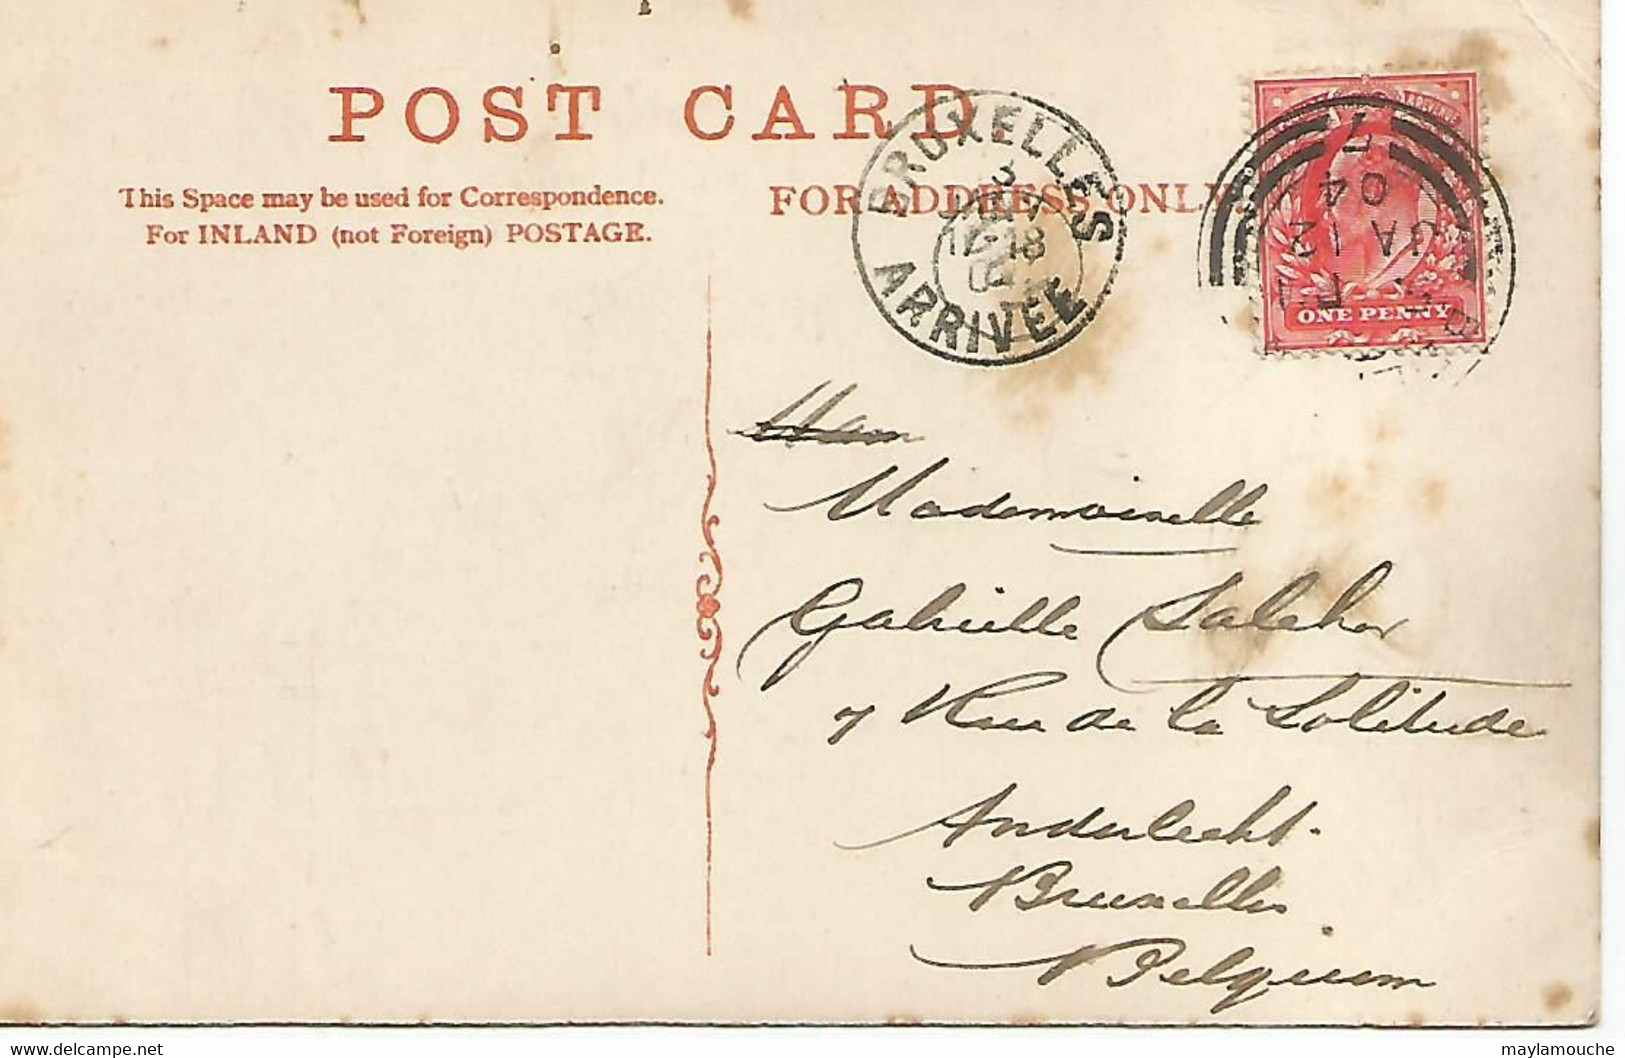 POST CARD.
This Space may be used for Correspondence.
For INLAND (not Foreign) POSTAGE.
FOR ADDRESS ONLY.
BRUXELLES
ARRIVÉE
JA 12
04
ONE PENNY
Mademoiselle
Gabrielle
7 Rue de la Solitude
Anderlecht.
Bruxelles
Belgium
delcampe.net
maylamouche